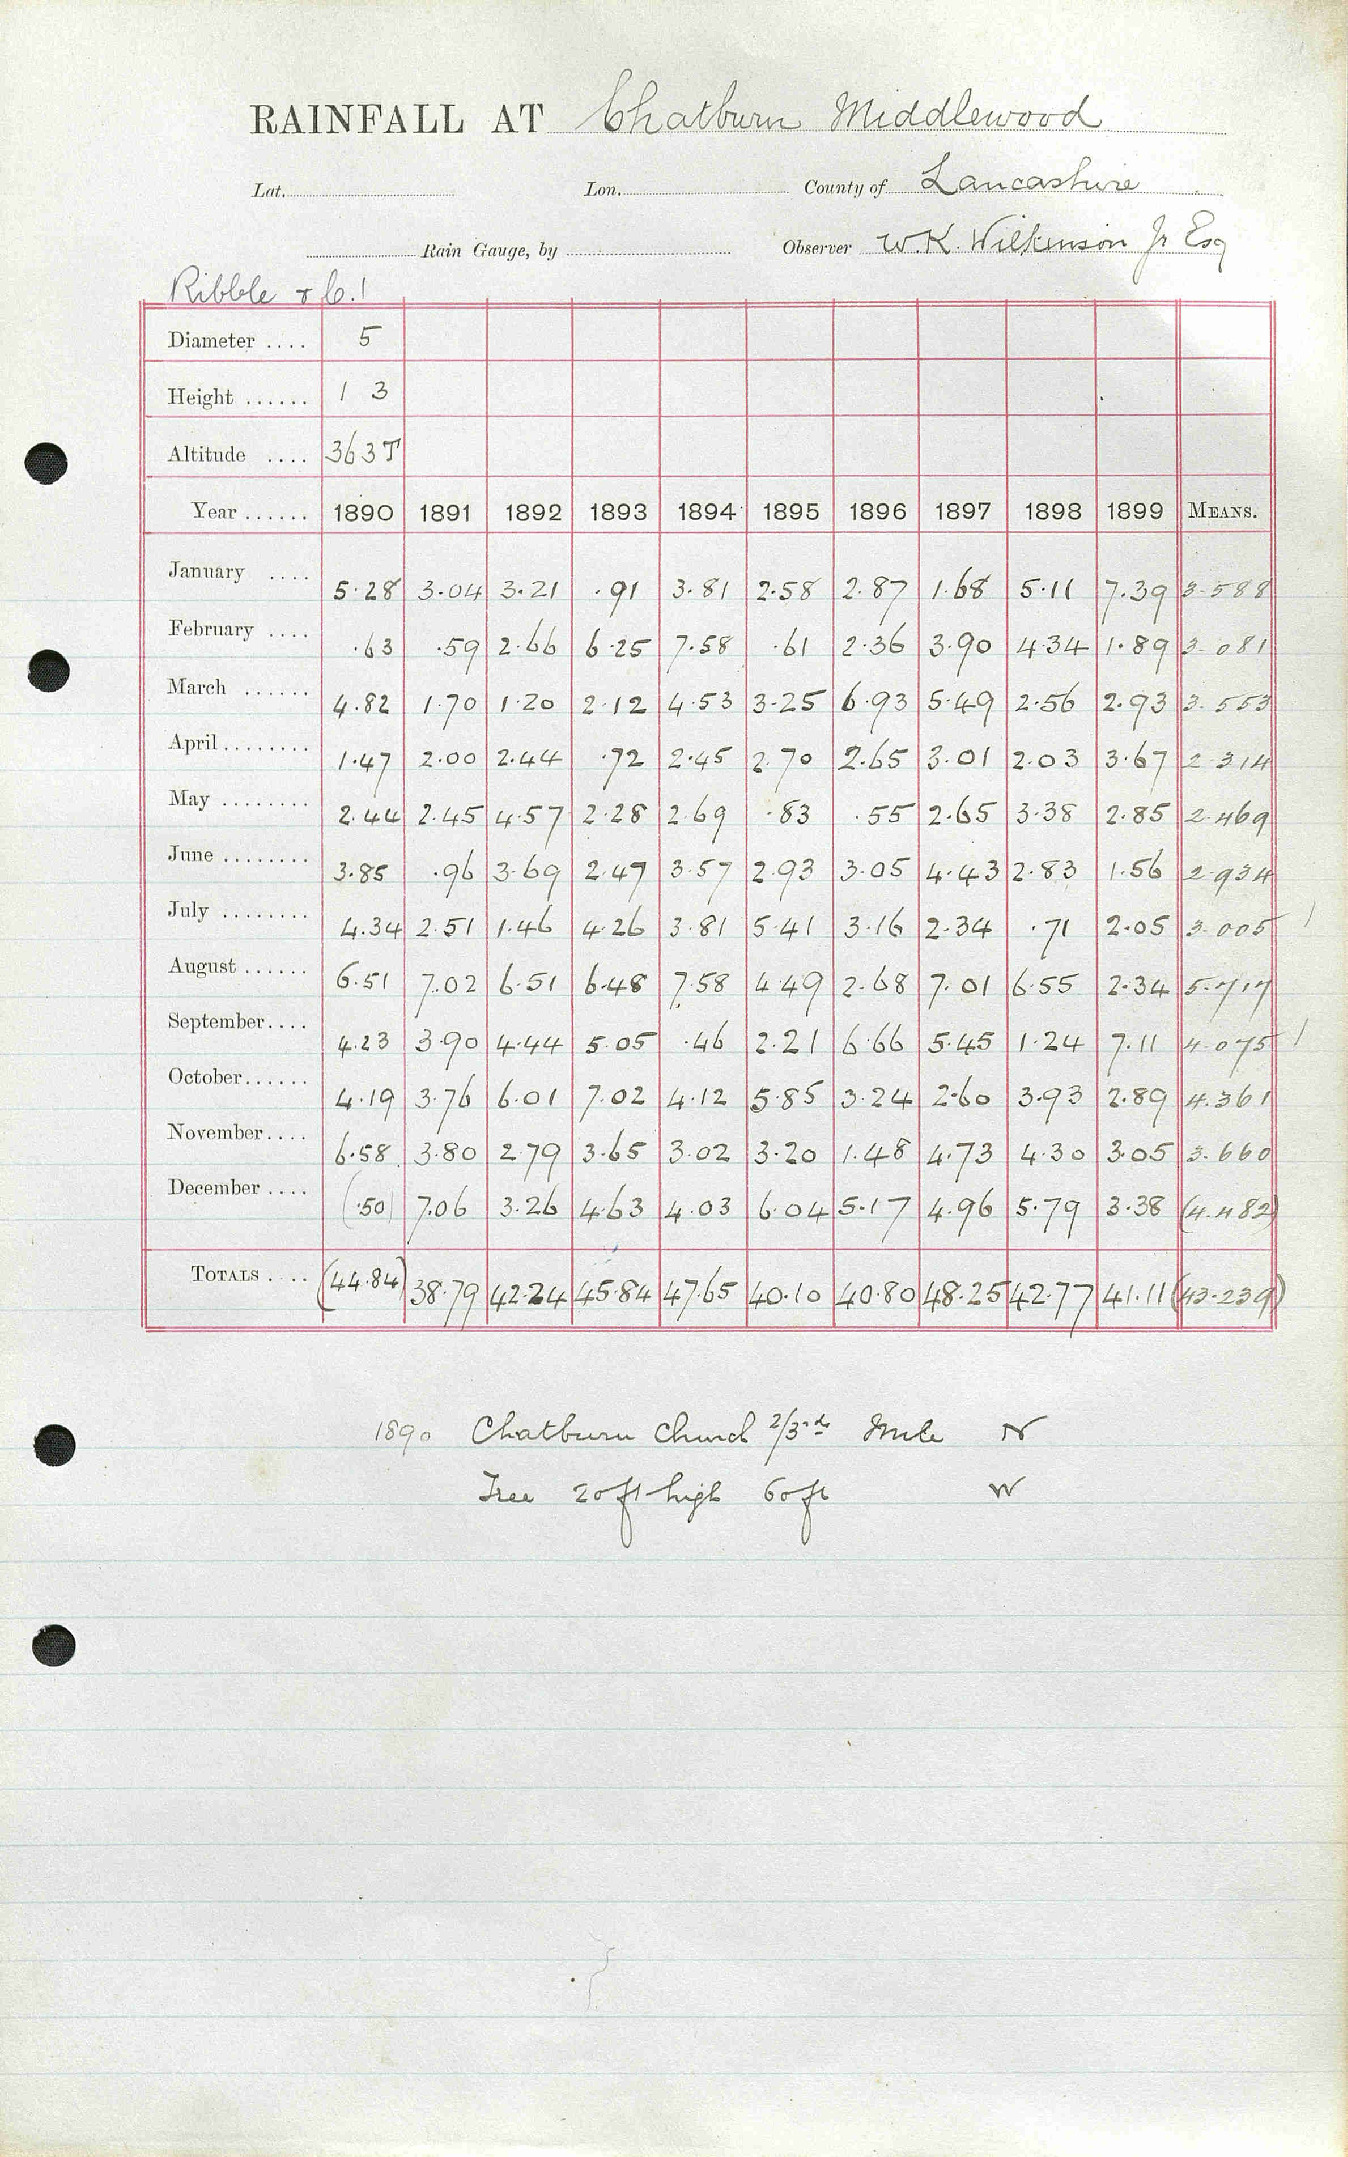 RAINFALL AT Chatburn Middlewood
Lat. Lon. County of Lancashire
Rain Gauge, by Observer W.K. Wilkinson Jr Esq
Ribble &
Diameter .... 5
Height ...... 1 3
Altitude .... 363T
Year ...... 1890 1891 1892 1893 1894 1895 1896 1897 1898 1899 MEANS.
January .... 5.28 3.04 3.21 .91 3.81 2.58 2.87 1.68 5.11 7.39 3.588
February .... .63 .59 2.66 6.25 7.58 .61 2.36 3.90 4.34 1.89 3.081
March ...... 4.82 1.70 1.20 2.12 4.53 3.25 6.93 5.49 2.56 2.93 3.553
April ........ 1.47 2.00 2.44 .72 2.45 2.70 2.65 3.01 2.03 3.67 2.314
May ........ 2.44 2.45 4.57 2.28 2.69 .83 .55 2.65 3.38 2.85 2.469
June ........ 3.85 .96 3.69 2.47 3.57 2.93 3.05 4.43 2.83 1.56 2.934
July ........ 4.34 2.51 1.46 4.26 3.81 5.41 3.16 2.34 .71 2.05 3.005 /
August ...... 6.51 7.02 6.51 6.48 7.58 4.49 2.68 7.01 6.55 2.34 5.717
September.... 4.23 3.90 4.44 5.05 .46 2.21 6.66 5.45 1.24 7.11 4.075 /
October ...... 4.19 3.76 6.01 7.02 4.12 5.85 3.24 2.60 3.93 2.89 4.361
November.... 6.58 3.80 2.79 3.65 3.02 3.20 1.48 4.73 4.30 3.05 3.660
December .... (.50) 7.06 3.26 4.63 4.03 6.04 5.17 4.96 5.79 3.38 (4.482)
TOTALS .... (44.84) 38.79 42.24 45.84 47.65 40.10 40.80 48.25 42.77 41.11 (43.239)
1890 Chatburn Church 2/3rds Mile N
Tree 20ft high 60ft W